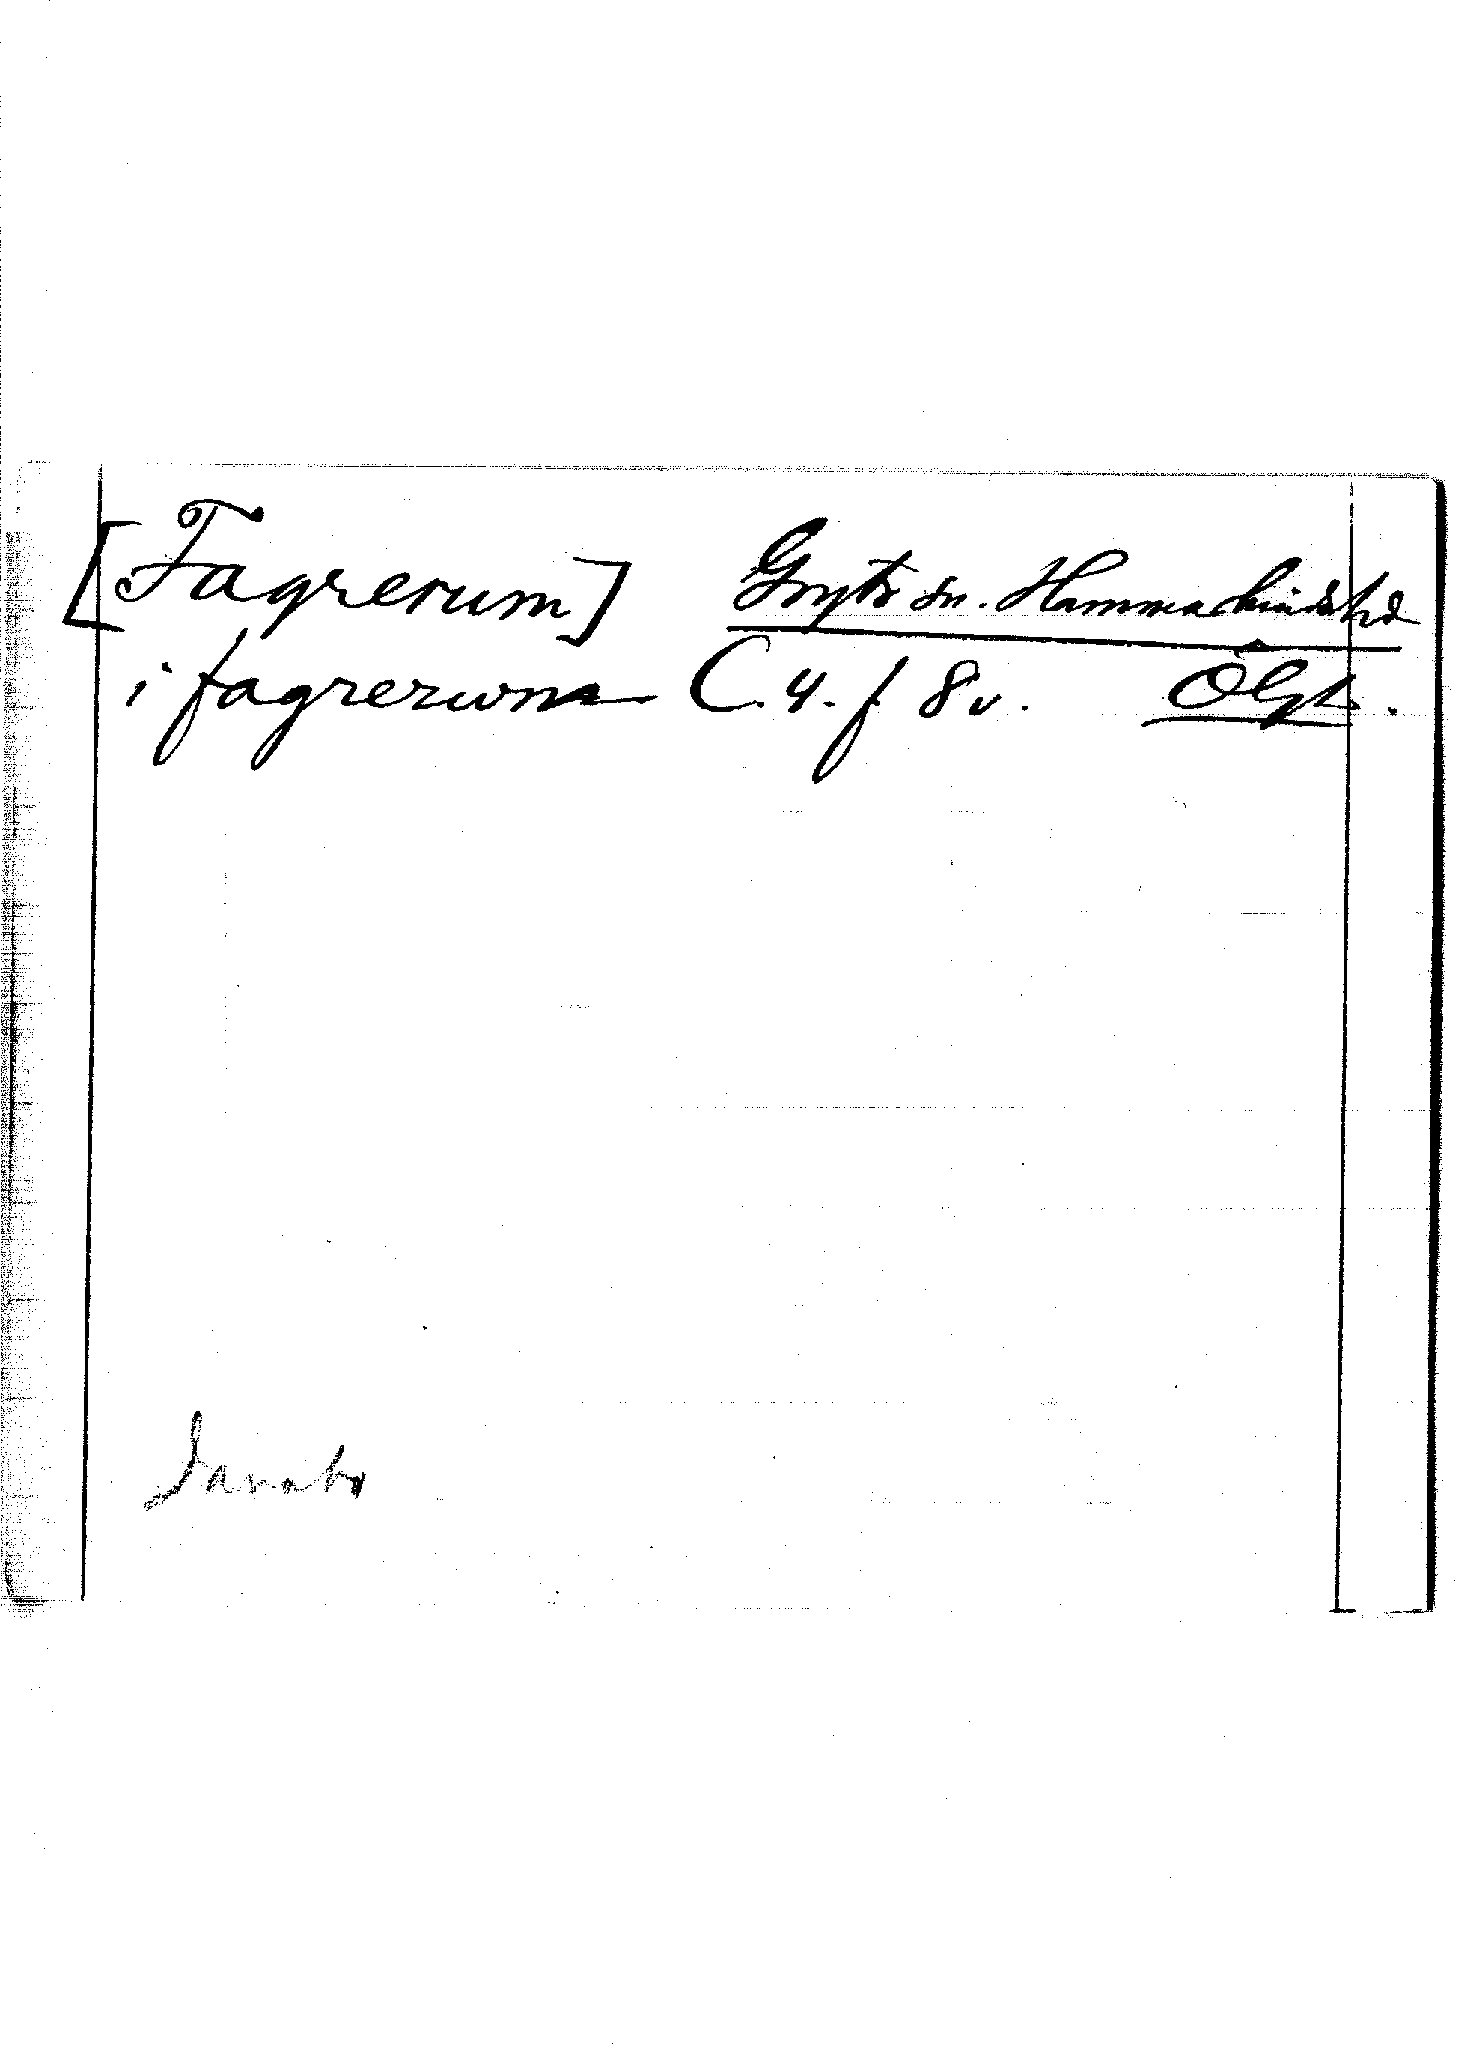 [Fagrerum] Gryts sn. Hammarkinds hd
i fagrerum C. 4. f. 8 v. Ögtl.